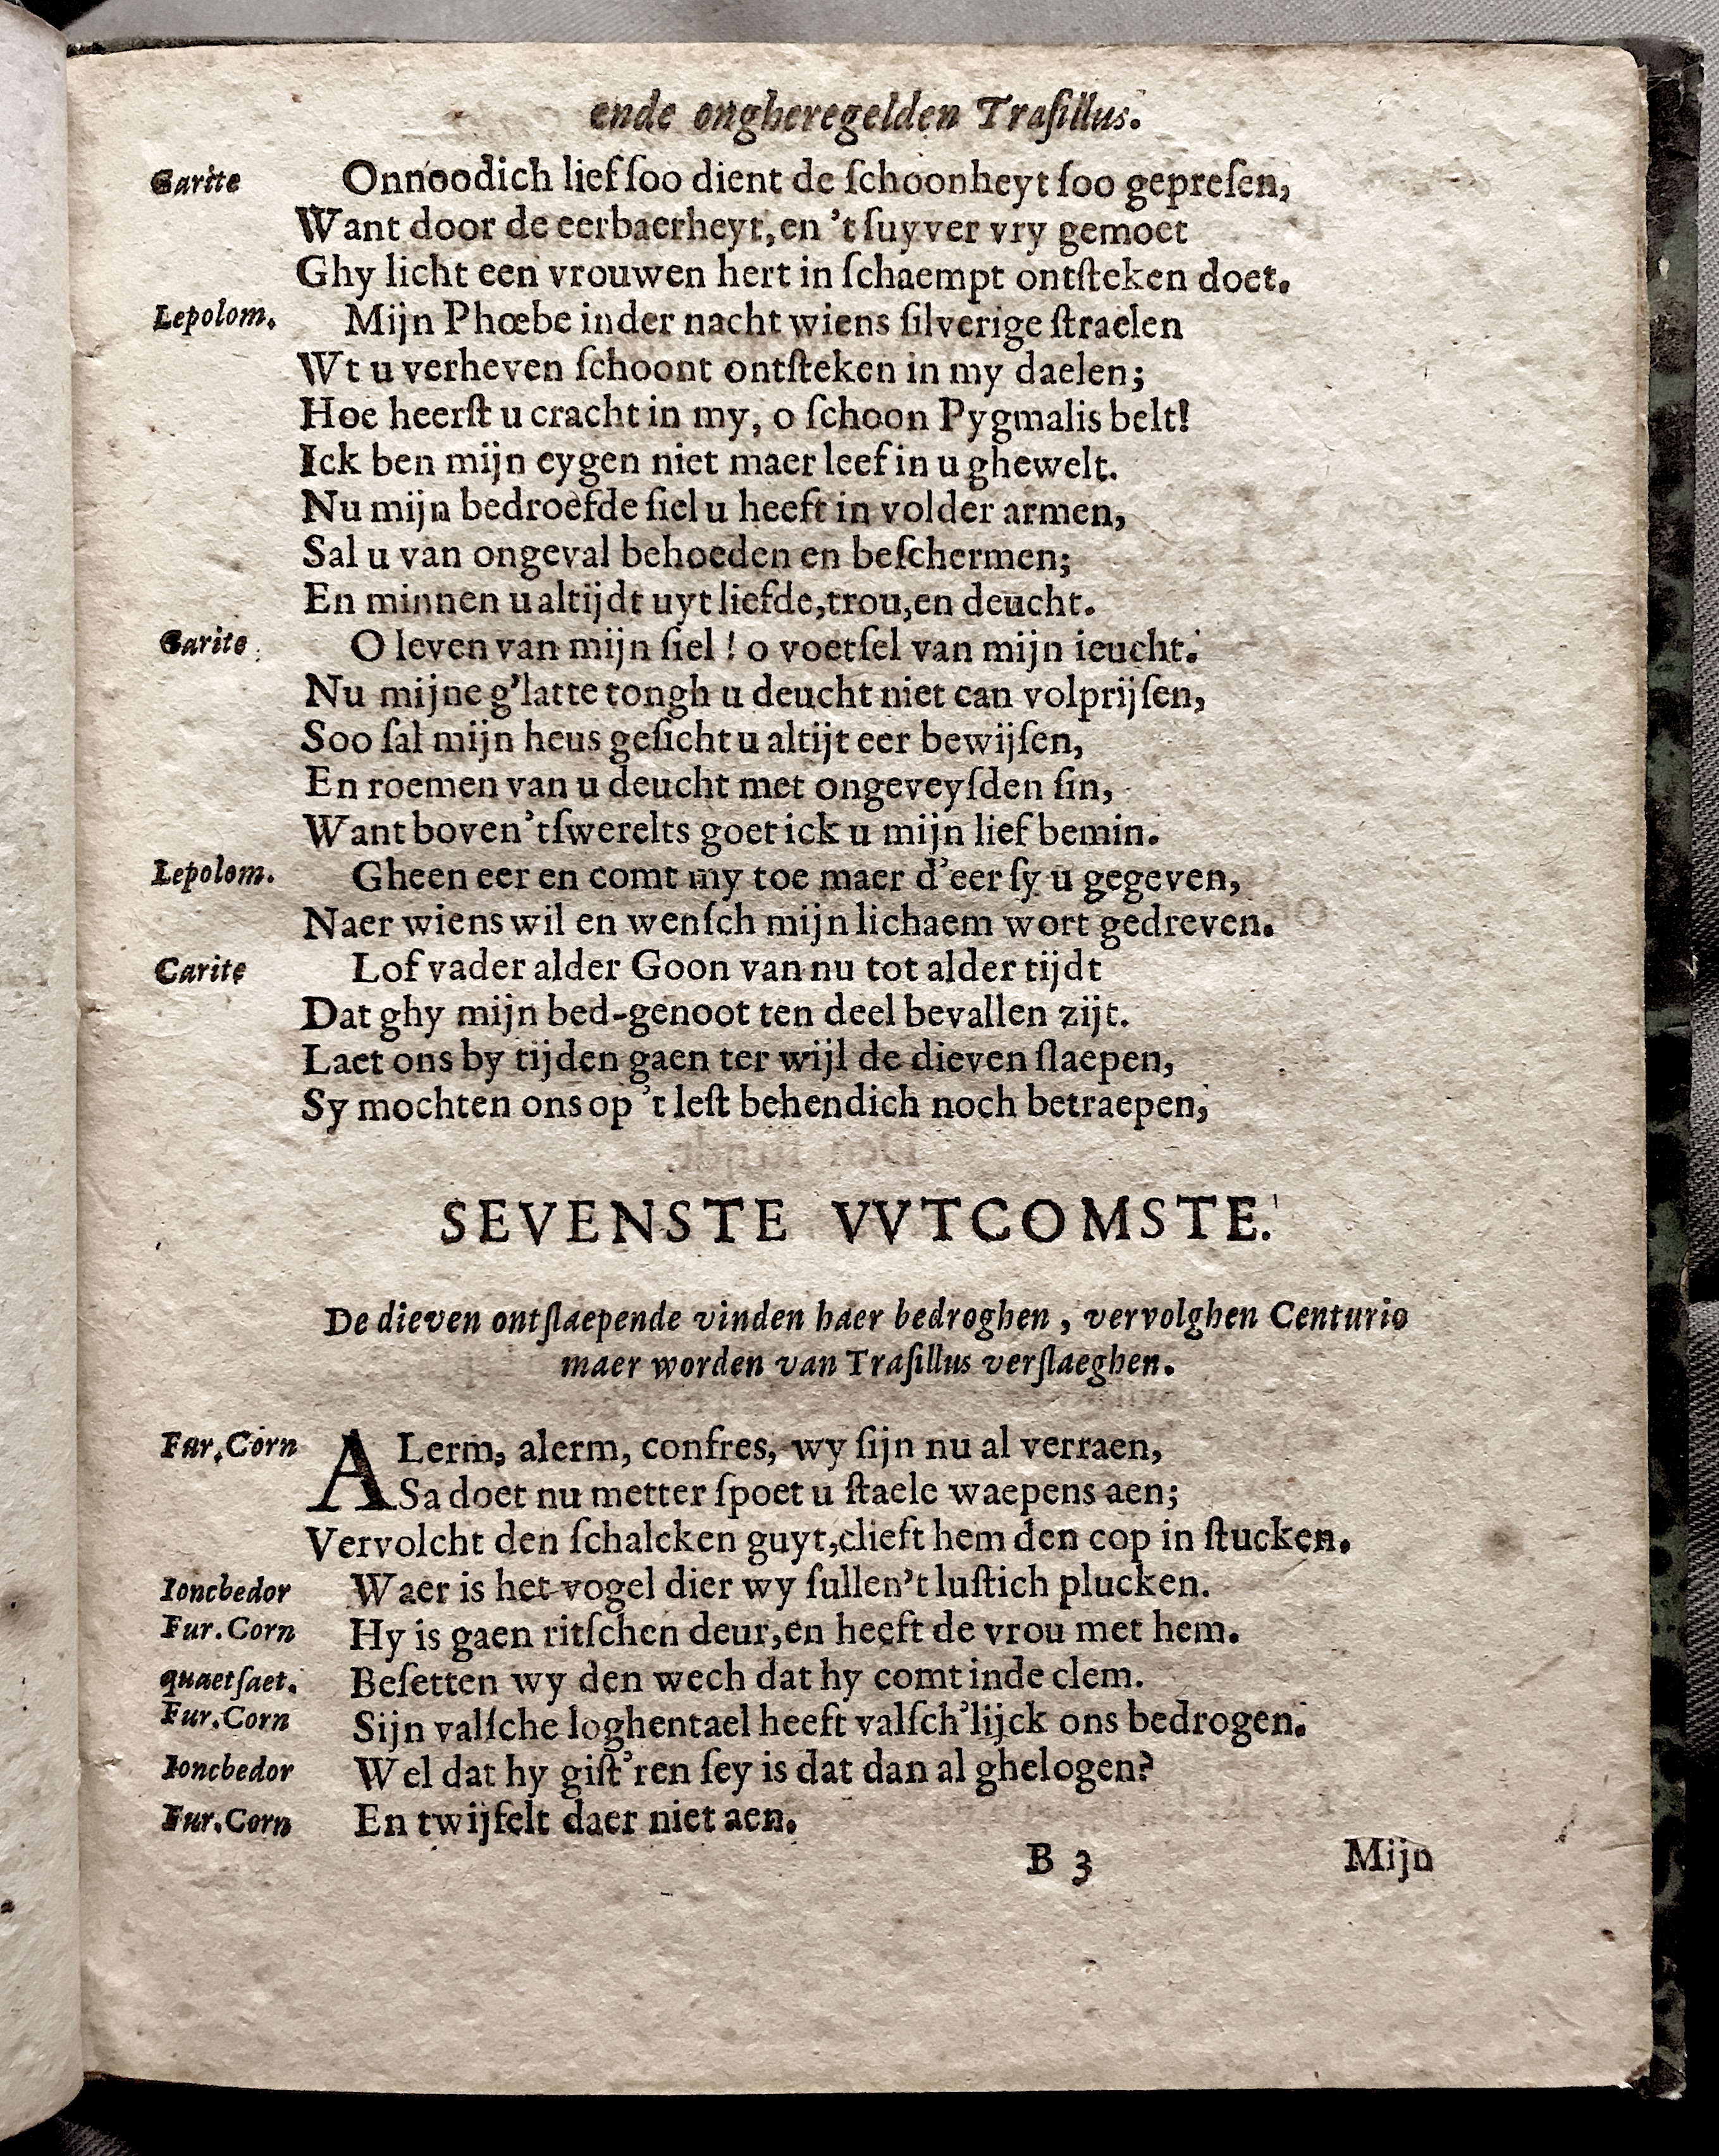 ende ongheregelden Traſillus.
Carite Onnoodich lief ſoo dient de ſchoonheyt ſoo gepreſen,
Want door de eerbaerheyt, en 't ſuyver vry gemoet
Ghy licht een vrouwen hert in ſchaempt ontſteken doet.
Lepolom. Mijn Phœbe inder nacht wiens ſilverige ſtraelen
Wt u verheven ſchoont ontſteken in my daelen;
Hoe heerſt u cracht in my, o ſchoon Pygmalis belt!
Ick ben mijn eygen niet maer leef in u ghewelt.
Nu mijn bedroefde ſiel u heeft in volder armen,
Sal u van ongeval behoeden en beſchermen;
En minnen u altijdt uyt liefde, trou, en deucht.
Carite O leven van mijn ſiel! o voetſel van mijn ieucht.
Nu mijne g'latte tongh u deucht niet can volprijſen,
Soo ſal mijn heus geſicht u altijt eer bewijſen,
En roemen van u deucht met ongeveyſden ſin,
Want boven 'tſwerelts goet ick u mijn lief bemin.
Lepolom. Gheen eer en comt my toe maer d'eer ſy u gegeven,
Naer wiens wil en wenſch mijn lichaem wort gedreven.
Carite Lof vader alder Goon van nu tot alder tijdt
Dat ghy mijn bed-genoot ten deel bevallen zijt.
Laet ons by tijden gaen ter wijl de dieven ſlaepen,
Sy mochten ons op 't leſt behendich noch betraepen,
SEVENSTE VVTCOMSTE.
De dieven ontſlaepende vinden haer bedroghen, vervolghen Centurio
maer worden van Traſillus verſlaeghen.
Fur.Corn ALerm, alerm, confres, wy ſijn nu al verraen,
Sa doet nu metter ſpoet u ſtaele waepens aen;
Vervolcht den ſchalcken guyt, clieft hem den cop in ſtucken.
Ioncbedor Waer is het vogel dier wy ſullen't luſtich plucken.
Fur.Corn Hy is gaen ritſchen deur, en heeft de vrou met hem.
quaetſaet. Beſetten wy den wech dat hy comt inde clem.
Fur.Corn Sijn valſche loghentael heeft valſch'lijck ons bedrogen.
Ioncbedor Wel dat hy giſt'ren ſey is dat dan al ghelogen?
Fur.Corn En twijfelt daer niet aen.
B 3 Mijn